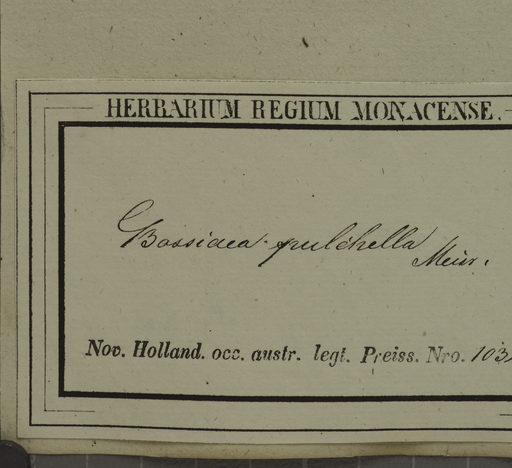 HERBARIUM REGIUM MONACENSE.
Bossiaea pulchella Meisr.
Nov. Holland. occ. austr. legt. Preiss. Nro. 103